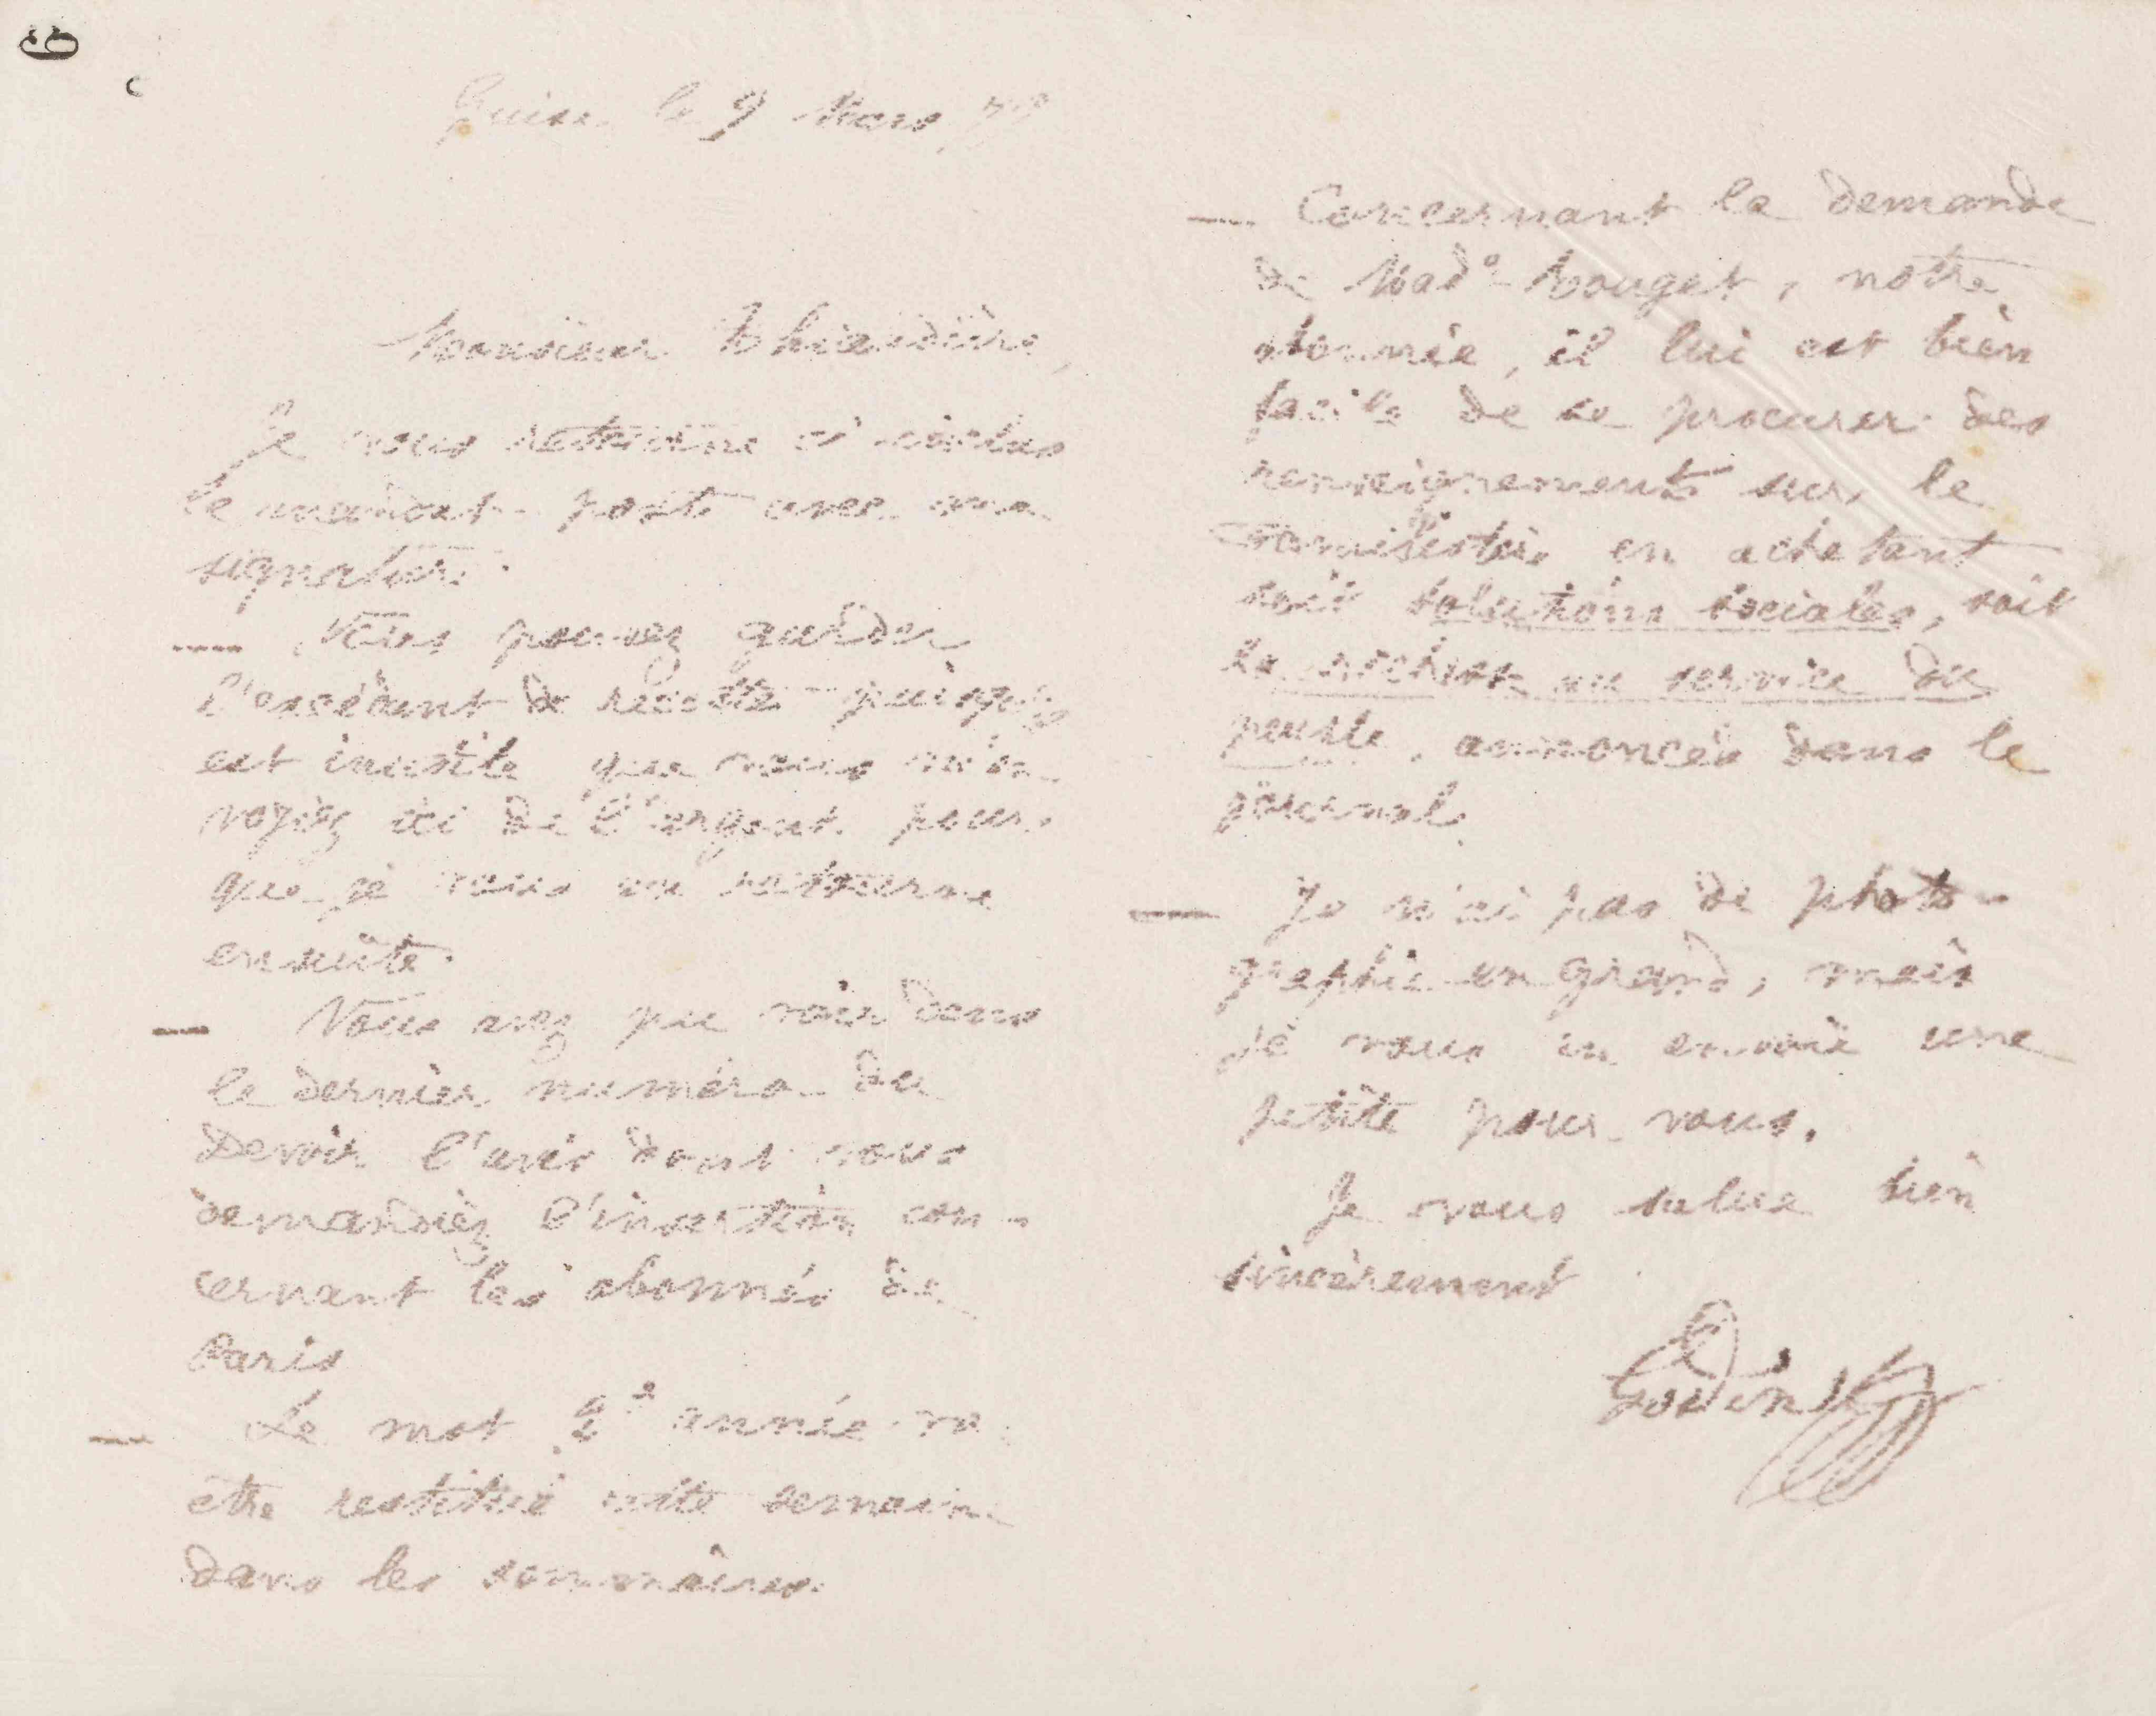 Guise le 9 Mars 79
Monsieur
Je vous retourne ci inclus
le mandat-poste avec ma
signature.
— Vous pouvez garder
l'excédant de recette puisqu'il
est inutile que vous m'en-
voyiez ici de l'argent pour
que je vous en retourne
ensuite.
— Vous avez pu voir dans
le dernier numéro du
Devoir l'avis dont vous
demandiez l'insertion con-
cernant les abonnés de
Paris
— Le mot 2e année va
être restitué cette semaine
dans les sommaires.
— Concernant la demande
de Made Louget, notre
abonnée, il lui est bien
facile de se procurer des
renseignements sur le
familistère en achetant
soit Solutions sociales, soit
La richesse au service du
peuple, annoncés dans le
journal.
— Je n'ai pas de photo-
graphie en grand, mais
je vous en envoie une
petite pour vous.
Je vous salue bien
sincèrement
Godin